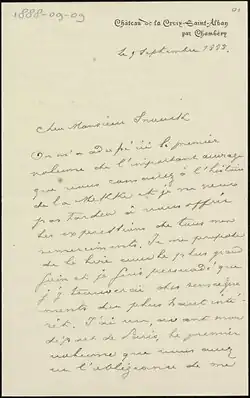 1888-09-09
Château de la Croix-Saint-Alban
par Chambéry
le 9 Septembre 1888.
Cher Monsieur Snouck
On m'a adressé ici le premier
volume de l'important ouvrage
que vous consacrez à l'histoire
de la Mekke et je ne veux
pas tarder à vous offrir
les expressions de tous mes
remerciments. Je me propose
de le lire avec le plus grand
soin et je suis persuadé que
j'y trouverai des renseigne
ments du plus haut inté
rêt. J'ai vu, avant mon
départ de Paris, le premier
volume que vous avez
eu l'obligeance de me